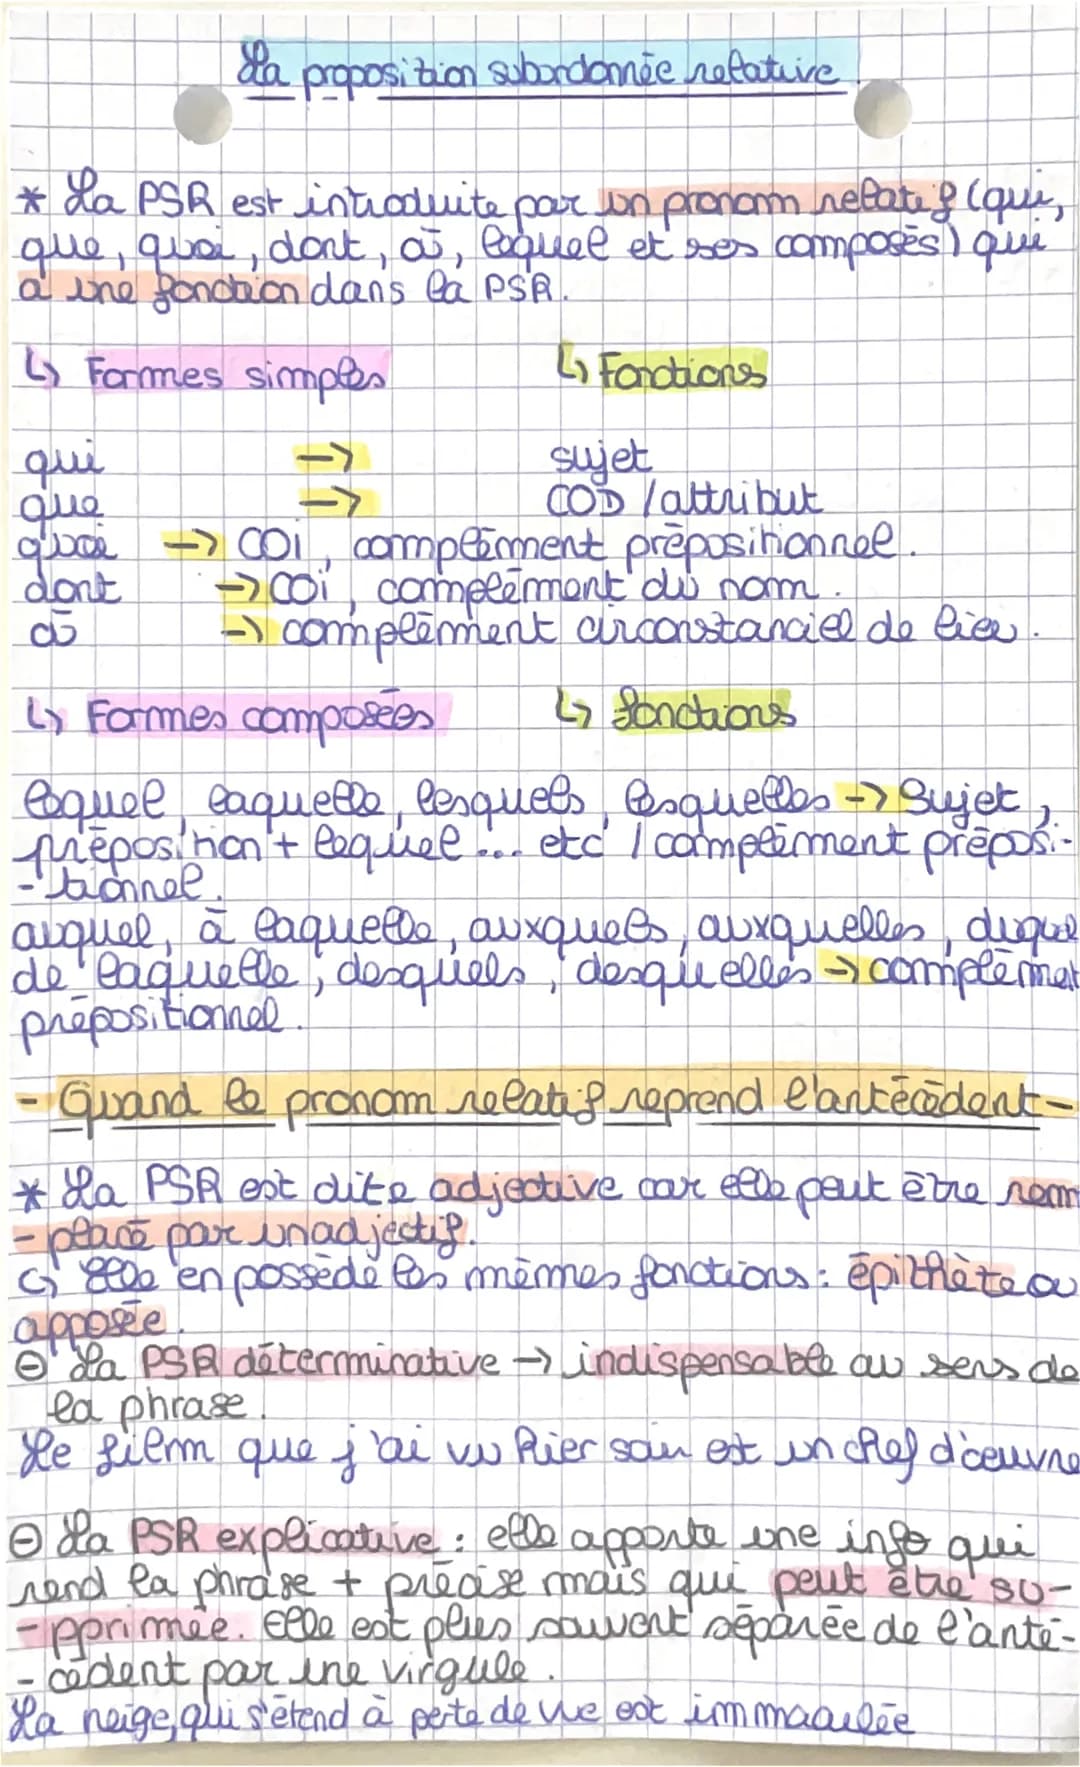 La proposition subordonnée relative
* La PSR est introduite par un pronom relatif (qui,
que, quoi, dont, où, lequel et ses composés) qui
a une fonction dans la PSR.
↳ Formes simples ↳ Fonctions
qui → sujet
que → COD / attribut
quoi → COI, complément prépositionnel.
dont → COI, complément du nom.
où → complément circonstanciel de lieu.
↳ Formes composées ↳ fonctions
lequel, laquelle, lesquels, lesquelles → Sujet,
préposition + lequel... etc / complément préposi-
-tionnel.
auquel, à laquelle, auxquels, auxquelles, duquel
de laquelle, desquels, desquelles → complément
prépositionnel.
- Quand le pronom relatif reprend l'antécédent -
* La PSR est dite adjective car elle peut être rem
-placé par un adjectif.
↳ Elle en possède les mêmes fonctions : épithète ou
apposée.
⊖ La PSR déterminative → indispensable au sens de
la phrase.
Le film que j'ai vu hier soir est un chef d'œuvre
⊖ La PSR explicative : elle apporte une info qui
rend la phrase + précise mais qui peut être su-
-pprimée. Elle est plus souvent séparée de l'anté-
-cédent par une virgule.
La neige, qui s'étend à perte de vue est immaculée